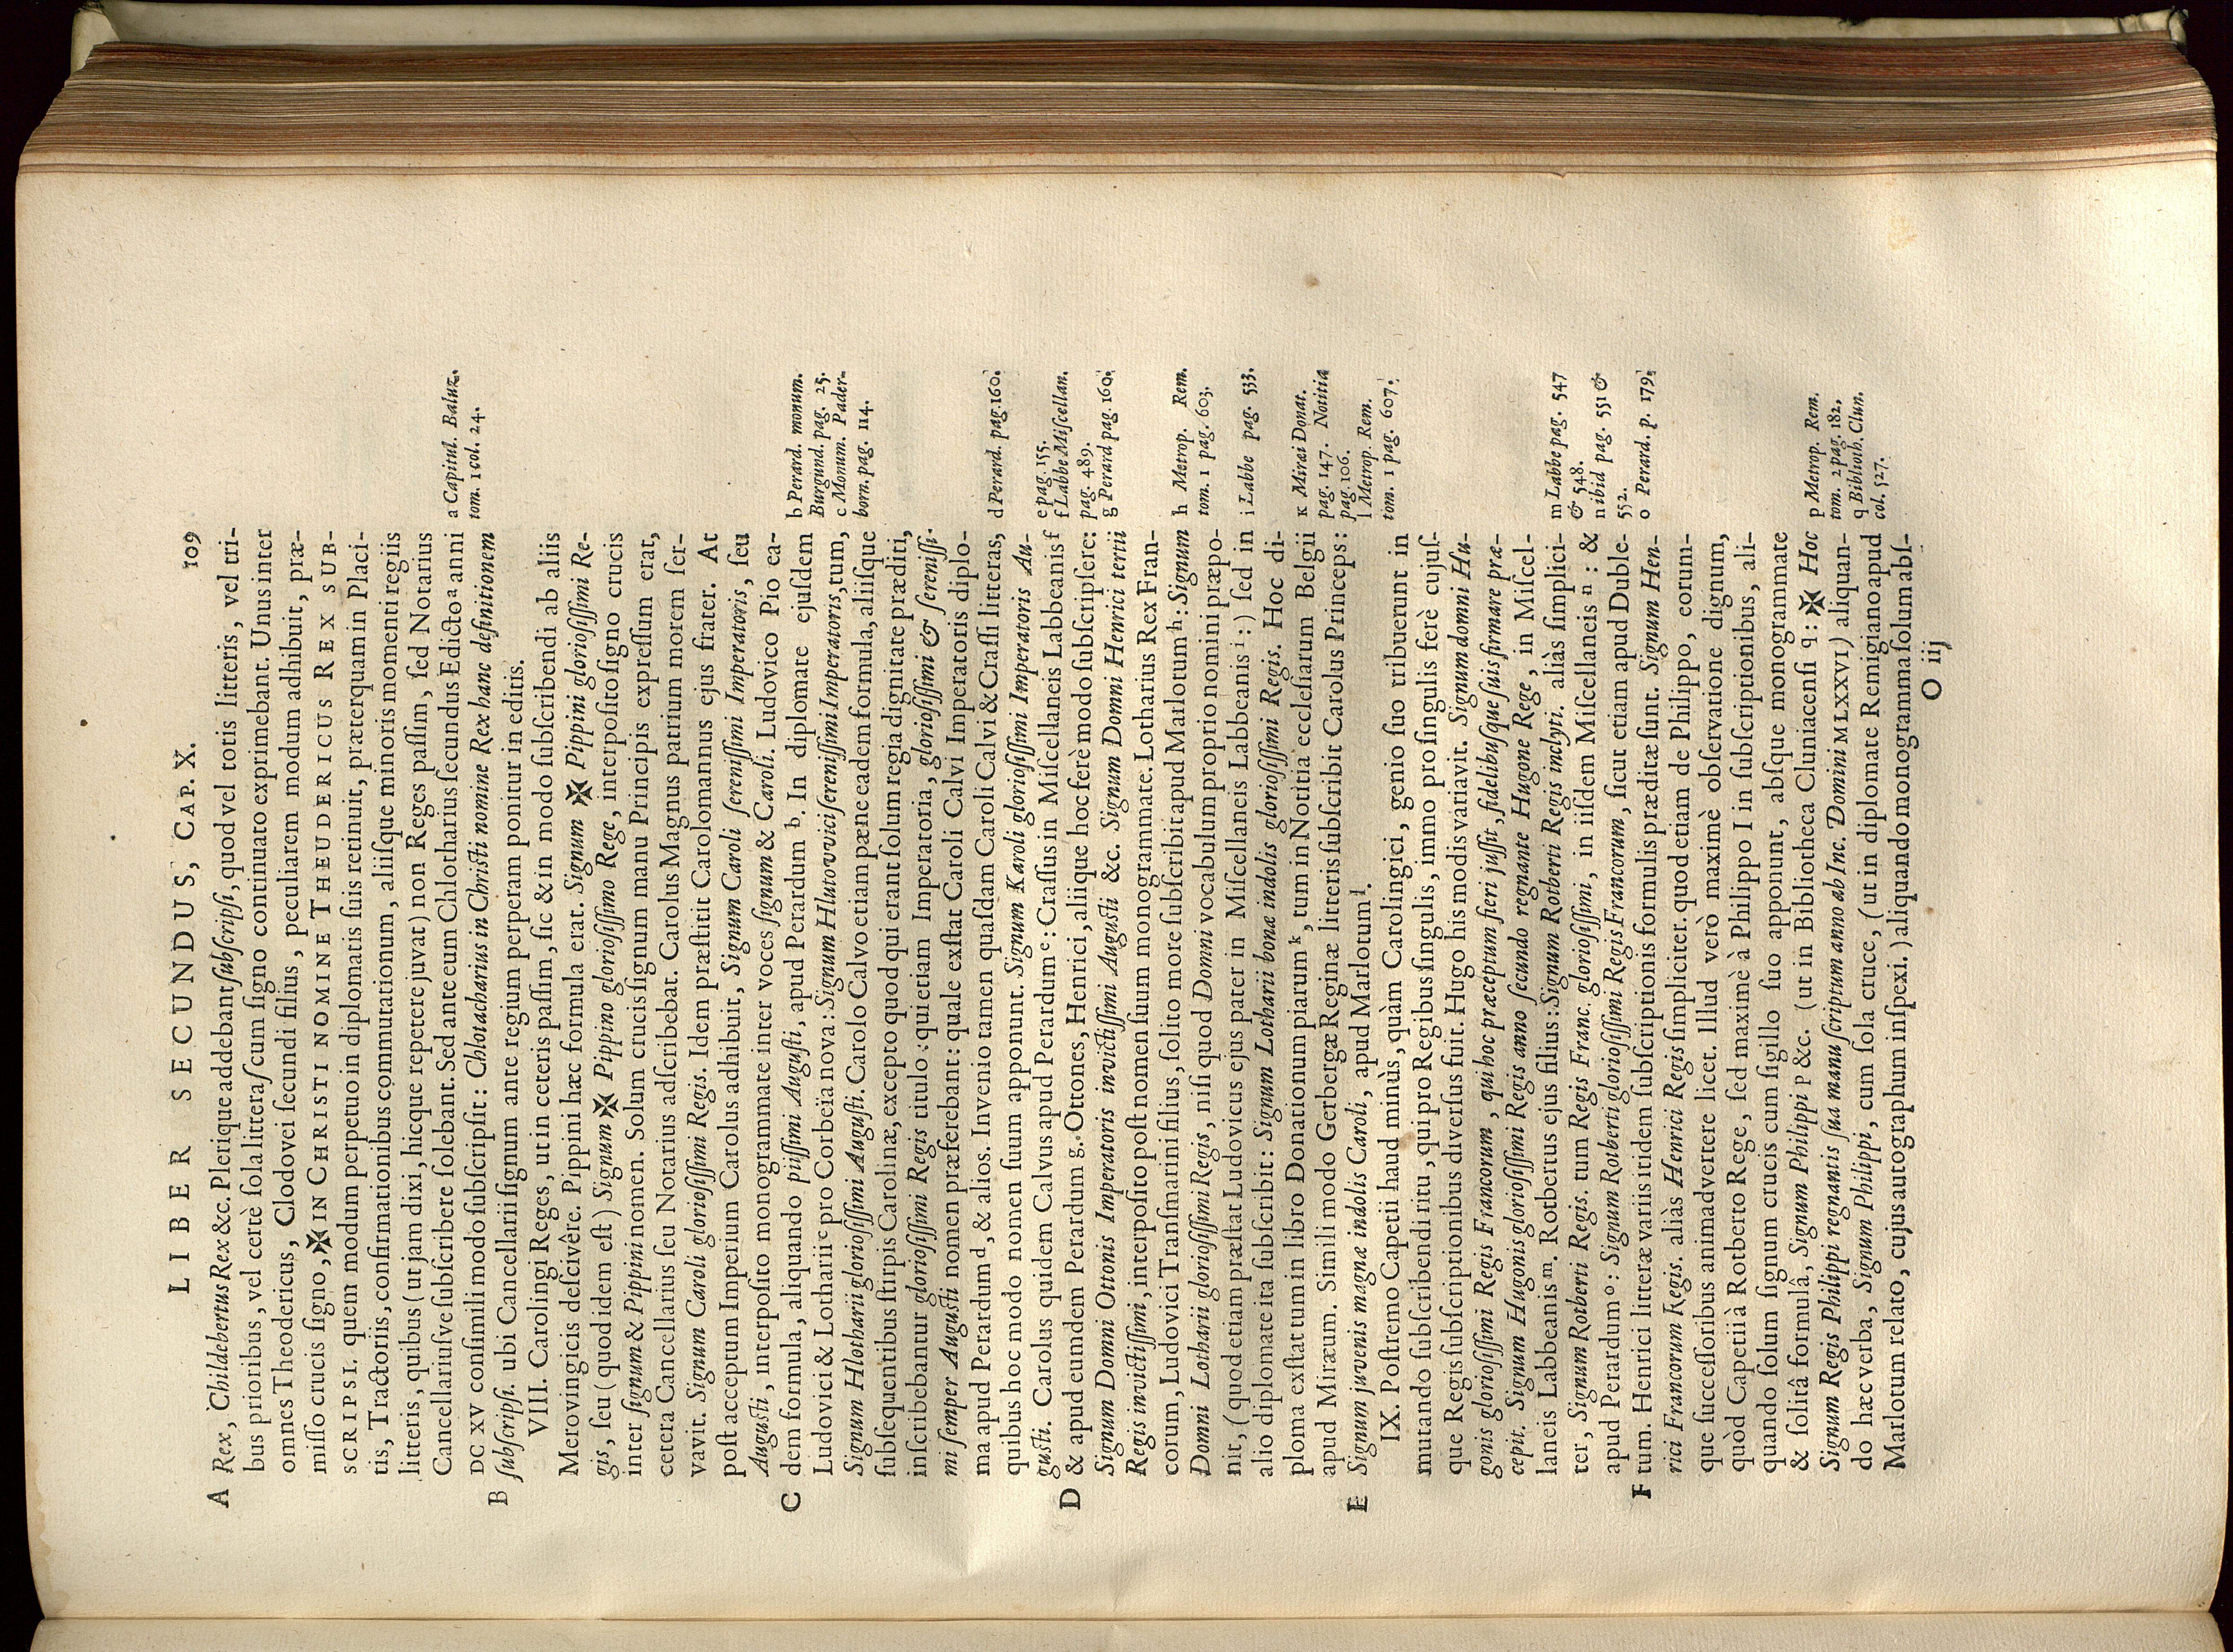 LIBER SECUNDUS, CAP. X. 109
A Rex, Childebertus Rex &c. Plerique addebant ſubſcripſi, quod vel totis litteris, vel tri-
bus prioribus, vel certè ſola littera ſ cum ſigno continuato exprimebant. Unus inter
omnes Theodericus, Clodovei ſecundi filius, peculiarem modum adhibuit, præ-
miſſo crucis ſigno, ✠ IN CHRISTI NOMINE THEUDERICUS REX SUB-
SCRIPSI. quem modum perpetuo in diplomatis ſuis retinuit, præterquam in Placi-
tis, Tractoriis, confirmationibus commutationum, aliiſque minoris momenti regiis
litteris, quibus (ut jam dixi, hicque repetere juvat) non Reges paſſim, ſed Notarius
Cancellariuſve ſubſcribere ſolebant. Sed ante eum Chlotharius ſecundus Edicto a anni
DCXV conſimili modo ſubſcripſit: Chlotacharius in Chriſti nomine Rex hanc definitionem
B ſubſcripſi. ubi Cancellarii ſignum ante regium perperam ponitur in editis.
VIII. Carolingi Reges, ut in ceteris paſſim, ſic & in modo ſubſcribendi ab aliis
Merovingicis deſcivêre. Pippini hæc formula erat. Signum ✠ Pippini glorioſiſſimi Re-
gis, ſeu (quod idem eſt) Signum ✠ Pippino glorioſiſſimo Rege, interpoſito ſigno crucis
inter ſignum & Pippini nomen. Solum crucis ſignum manu Principis expreſſum erat,
cetera Cancellarius ſeu Notarius adſcribebat. Carolus Magnus patrium morem ſer-
vavit. Signum Caroli glorioſiſſimi Regis. Idem præſtitit Carolomannus ejus frater. At
poſt acceptum Imperium Carolus adhibuit, Signum Caroli ſereniſſimi Imperatoris, ſeu
Auguſti, interpoſito monogrammate inter voces ſignum & Caroli. Ludovico Pio ea-
C dem formula, aliquando piiſſimi Auguſti, apud Perardum b. In diplomate ejuſdem
Ludovici & Lotharii c pro Corbeïa nova: Signum Hlutovvici ſereniſſimi Imperatoris, tum,
Signum Hlotharii glorioſiſſimi Auguſti. Carolo Calvo etiam pæne eadem formula, aliiſque
ſubſequentibus ſtirpis Carolinæ, excepto quod qui erant ſolum regia dignitate præditi,
inſcribebantur glorioſiſſimi Regis titulo: qui etiam Imperatoria, glorioſiſſimi & ſereniſſi-
mi ſemper Auguſti nomen præferebant: quale exſtat Caroli Calvi Imperatoris diplo-
ma apud Perardum d, & alios. Invenio tamen quaſdam Caroli Calvi & Craſſi litteras,
quibus hoc modo nomen ſuum apponunt. Signum Karoli glorioſiſſimi Imperatoris Au-
guſti. Carolus quidem Calvus apud Perardum e: Craſſus in Miſcellaneis Labbeanis f
D & apud eumdem Perardum g. Ottones, Henrici, aliique hoc ferè modo ſubſcripſere:
Signum Domni Ottonis Imperatoris invictiſſimi Auguſti &c. Signum Domni Henrici tertii
Regis invictiſſimi, interpoſito poſt nomen ſuum monogrammate. Lotharius Rex Fran-
corum, Ludovici Tranſmarini filius, ſolito more ſubſcribit apud Marlotum h: Signum
Domni Lotharii glorioſiſſimi Regis, niſi quod Domni vocabulum proprio nomini præpo-
nit, (quod etiam præſtat Ludovicus ejus pater in Miſcellaneis Labbeanis i:) ſed in
alio diplomate ita ſubſcribit: Signum Lotharii bonæ indolis glorioſiſſimi Regis. Hoc di-
ploma exſtat tum in libro Donationum piarum k, tum in Notitia eccleſiarum Belgii
apud Miræum. Simili modo Gerbergæ Reginæ litteris ſubſcribit Carolus Princeps:
E Signum juvenis magnæ indolis Caroli, apud Marlotum l.
IX. Poſtremo Capetii haud minùs, quàm Carolingici, genio ſuo tribuerunt in
mutando ſubſcribendi ritu, qui pro Regibus ſingulis, immo pro ſingulis ferè cujuſ-
que Regis ſubſcriptionibus diverſus fuit. Hugo his modis variavit. Signum domni Hu-
gonis glorioſiſſimi Regis Francorum, qui hoc præceptum fieri juſſit, fidelibuſque ſuis firmare præ-
cepit. Signum Hugonis glorioſiſſimi Regis anno ſecundo regnante Hugone Rege, in Miſcel-
laneis Labbeanis m. Rotbertus ejus filius: Signum Rotberti Regis inclyti. aliàs ſimplici-
ter, Signum Rotberti Regis. tum Regis Franc. glorioſiſſimi, in iiſdem Miſcellaneis n: &
apud Perardum o: Signum Rotberti glorioſiſſimi Regis Francorum, ſicut etiam apud Duble-
F tum. Henrici litteræ variis itidem ſubſcriptionis formulis præditæ ſunt. Signum Hen-
rici Francorum Regis. aliàs Henrici Regis ſimpliciter. quod etiam de Philippo, eorum-
que ſucceſſoribus animadvertere licet. Illud verò maximè obſervatione dignum,
quòd Capetii à Rotberto Rege, ſed maximè à Philippo I in ſubſcriptionibus, ali-
quando ſolum ſignum crucis cum ſigillo ſuo apponunt, abſque monogrammate
& ſolitâ formulâ, Signum Philippi p &c. (ut in Bibliotheca Cluniacenſi q: ✠ Hoc
Signum Regis Philippi regnantis ſua manu ſcriptum anno ab Inc. Domini MLXXVI) aliquan-
do hæc verba, Signum Philippi, cum ſola cruce, (ut in diplomate Remigiano apud
Marlotum relato, cujus autographum inſpexi.) aliquando monogramma ſolum abſ-
O iij
a Capitul. Baluz.
tom. 1 col. 24.
b Perard. monum.
Burgund. pag. 25.
c Monum. Pader-
born. pag. 114.
d Perard. pag. 160.
e pag. 155.
f Labbe Miſcellan.
pag. 489.
g Perard pag. 160.
h Metrop. Rem.
tom. 1 pag. 603.
i Labbe pag. 533.
k Miræi Donat.
pag. 147. Notitia
pag. 106.
l Metrop. Rem.
tom. 1 pag. 607.
m Labbe pag. 547
& 548.
n ibid pag. 551 &
552.
o Perard. p. 179.
p Metrop. Rem.
tom. 2 pag. 182.
q Biblioth. Clun.
col. 527.